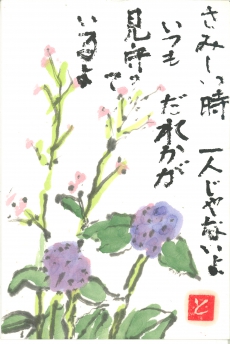 さみしい時
一人じゃないよ
いつも
だれかが
見守って
いるよ